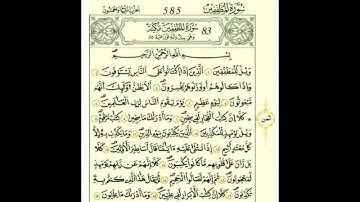 سورة المطففين 585 الحزب التاسع والخمسون
سورة المطففين مكية 83
بسم الله الرحمن الرحيم
ويل للمطففين الذين إذا اكتالوا على الناس يستوفون
وإذا كالوهم أو وزنوهم يخسرون ألا يظن أولئك أنهم
مبعوثون ليوم عظيم يوم يقوم الناس لرب العالمين
ثمن
كلا إن كتاب الفجار لفي سجين وما أدراك ما سجين كتاب مرقوم
ويل يومئذ للمكذبين الذين يكذبون بيوم الدين وما يكذب به إلا
كل معتد أثيم إذا تتلى عليه آياتنا قال أساطير الأولين كلا
بل ران على قلوبهم ما كانوا يكسبون كلا إنهم عن ربهم يومئذ
لمحجوبون ثم إنهم لصالوا الجحيم ثم يقال هذا الذي كنتم به
تكذبون كلا إن كتاب الأبرار لفي عليين وما أدراك ما عليون